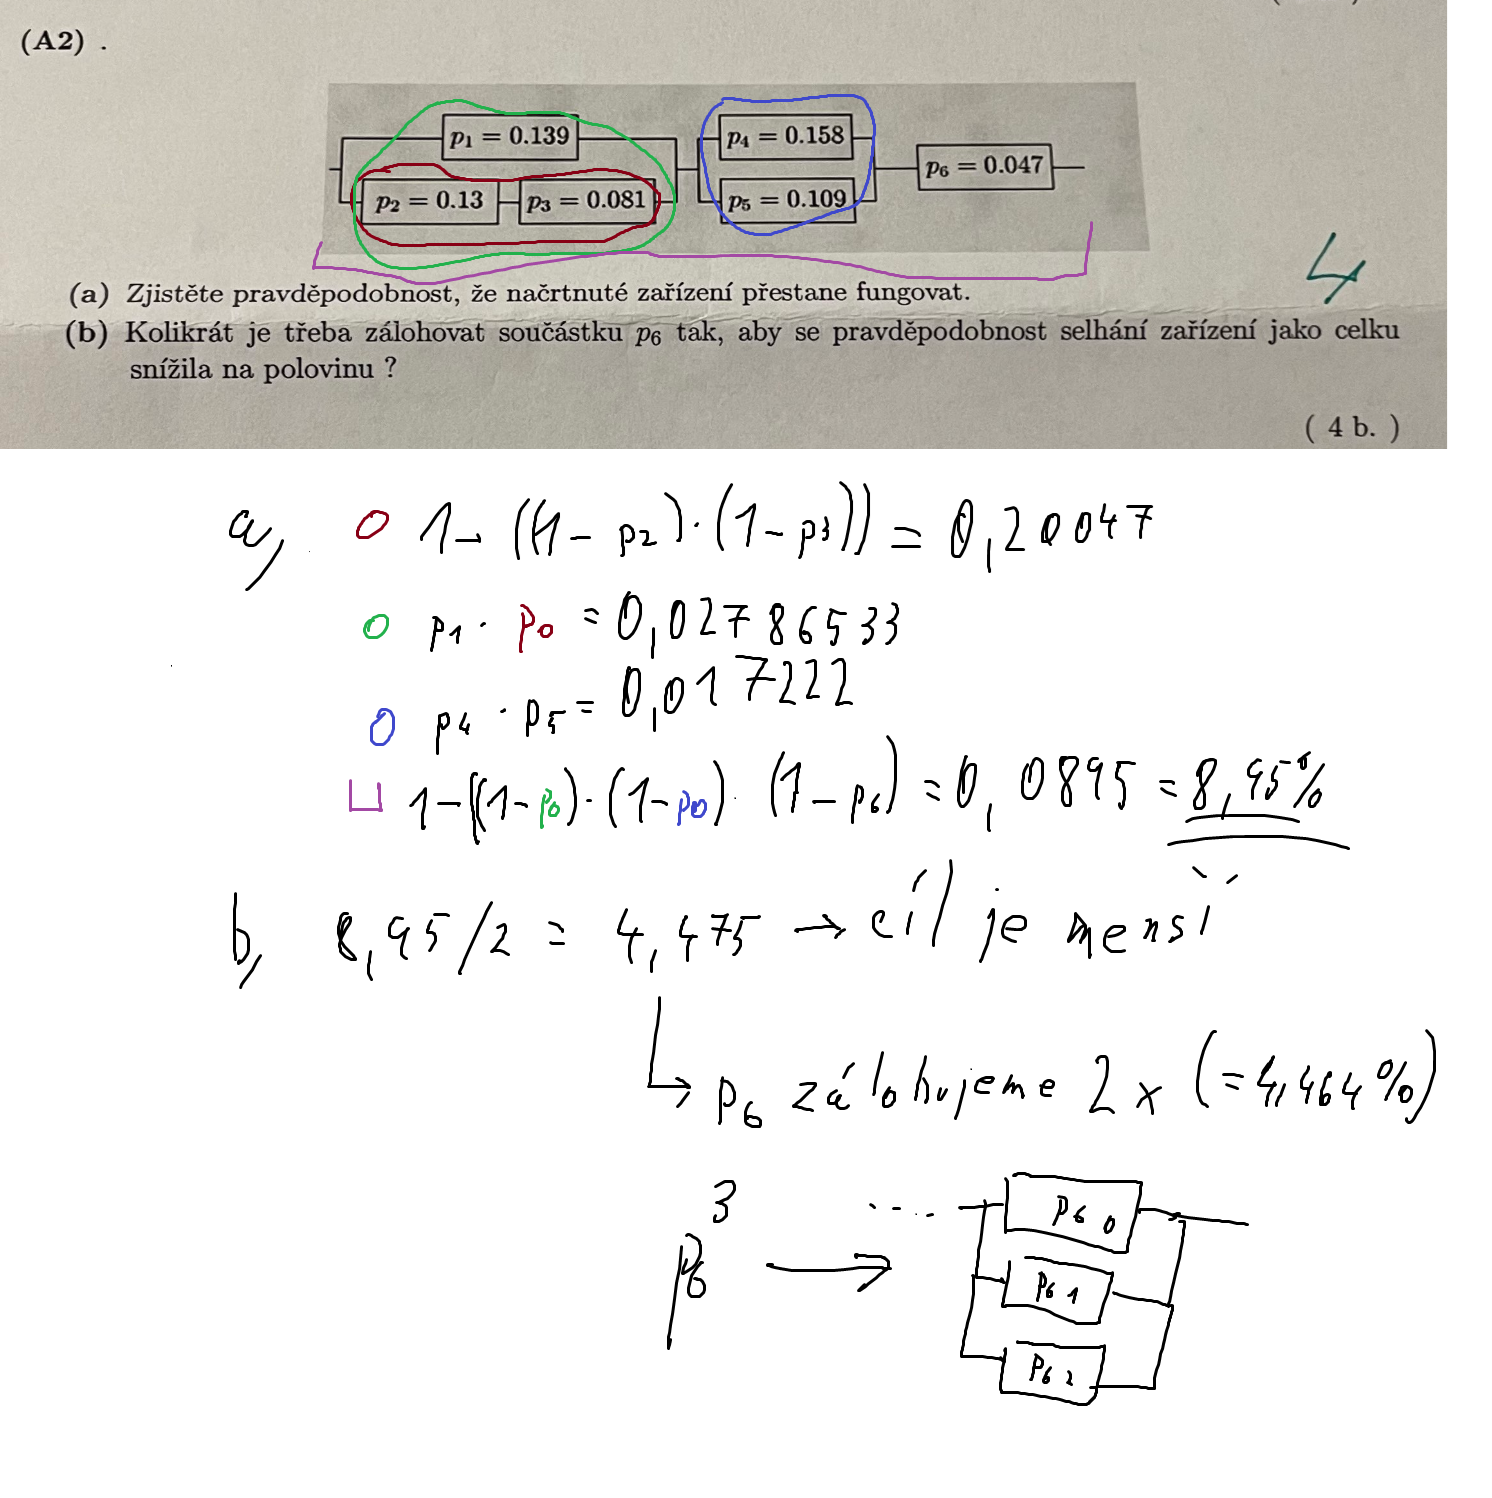 (A2) .
p₁ = 0.139
p₂ = 0.13
p₃ = 0.081
p₄ = 0.158
p₅ = 0.109
p₆ = 0.047
4
(a) Zjistěte pravděpodobnost, že načrtnuté zařízení přestane fungovat.
(b) Kolikrát je třeba zálohovat součástku p₆ tak, aby se pravděpodobnost selhání zařízení jako celku
snížila na polovinu ?
( 4 b. )
a, O 1 - ((1 - p2) · (1 - p3)) = 0,20047
O p1 · p0 = 0,02786533
O p4 · p5 = 0,017222
⊔ 1 - ((1 - p0) · (1 - p0) · (1 - p6) = 0,0895 = 8,95%
b, 8,95/2 = 4,475 → cíl je menší
↳ p6 zálohujeme 2x (= 4,464%)
p6³ → .... p6 0
p6 1
p6 2